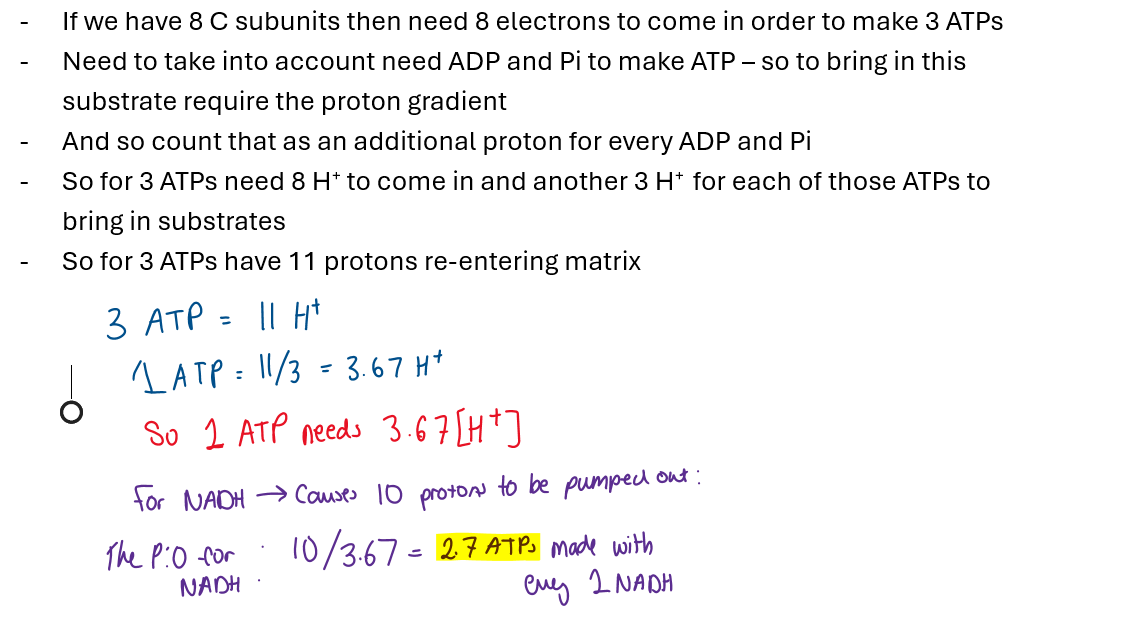 - If we have 8 C subunits then need 8 electrons to come in order to make 3 ATPs
- Need to take into account need ADP and Pi to make ATP – so to bring in this
substrate require the proton gradient
- And so count that as an additional proton for every ADP and Pi
- So for 3 ATPs need 8 H⁺ to come in and another 3 H⁺ for each of those ATPs to
bring in substrates
- So for 3 ATPs have 11 protons re-entering matrix
3 ATP = 11 H⁺
1 ATP = 11/3 = 3.67 H⁺
So 1 ATP needs 3.67[H⁺]
For NADH → Causes 10 protons to be pumped out:
The P:O for NADH : 10/3.67 = 2.7 ATPs made with
every 1 NADH